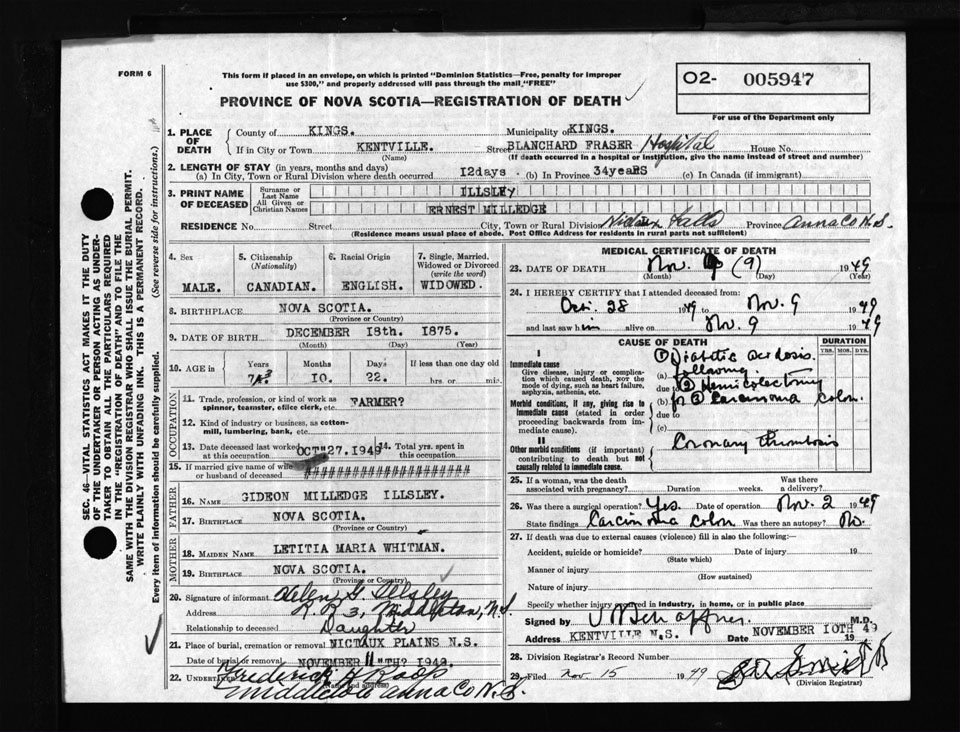 FORM 6
This form if placed in an envelope, on which is printed "Dominion Statistics—Free, penalty for improper
use $300," and properly addressed will pass through the mail "FREE"
PROVINCE OF NOVA SCOTIA—REGISTRATION OF DEATH
O2- 005947
For use of the Department only
SEC. 46—VITAL STATISTICS ACT MAKES IT THE DUTY
OF THE UNDERTAKER OR PERSON ACTING AS UNDER-
TAKER TO OBTAIN ALL THE PARTICULARS REQUIRED
IN THE "REGISTRATION OF DEATH" AND TO FILE THE
SAME WITH THE DIVISION REGISTRAR WHO SHALL ISSUE THE BURIAL PERMIT.
WRITE PLAINLY WITH UNFADING INK. THIS IS A PERMANENT RECORD.
Every item of information should be carefully supplied. (See reverse side for instructions.)
1. PLACE OF DEATH
County of KINGS. Municipality of KINGS.
If in City or Town KENTVILLE. Street BLANCHARD FRASER Hospital House No.
(Name) (If death occurred in a hospital or institution, give the name instead of street and number)
2. LENGTH OF STAY (in years, months and days)
(a) In City, Town or Rural Division where death occurred 12days. (b) In Province 34yeaRS (c) In Canada (if immigrant)
3. PRINT NAME OF DECEASED
Surname or Last Name ILLSLEY
All Given or Christian Names ERNEST MILLEDGE
RESIDENCE No. Street City, Town or Rural Division Nictaux Falls Province Anna Co N.S.
(Residence means usual place of abode. Post Office Address for residents in rural parts not sufficient)
4. Sex MALE.
5. Citizenship (Nationality) CANADIAN.
6. Racial Origin ENGLISH.
7. Single, Married, Widowed or Divorced (write the word) WIDOWED.
8. BIRTHPLACE NOVA SCOTIA.
(Province or Country)
9. DATE OF BIRTH DECEMBER 18th. 1875.
(Month) (Day) (Year)
10. AGE in Years Months 10. Days 22. If less than one day old hrs or min.
OCCUPATION
11. Trade, profession, or kind of work as spinner, teamster, office clerk, etc. FARMER?
12. Kind of industry or business, as cotton-mill, lumbering, bank, etc.
13. Date deceased last worked at this occupation OCT"27.1949 14. Total yrs. spent in this occupation
15. If married give name of wife or husband of deceased ######################
FATHER
16. NAME GIDEON MILLEDGE ILLSLEY.
17. BIRTHPLACE NOVA SCOTIA.
(Province or Country)
MOTHER
18. MAIDEN NAME LETITIA MARIA WHITMAN.
19. BIRTHPLACE NOVA SCOTIA.
(Province or Country)
20. Signature of informant Helen G Illsley
Address R.R 3, Middleton, N.S.
Relationship to deceased Daughter
21. Place of burial, cremation or removal NICTAUX PLAINS N.S.
Date of burial or removal NOVEMBER 11"TH? 1949.
22. UNDERTAKER Frederick H Roop
(Name and address)
Middleton Anna Co N.S.
MEDICAL CERTIFICATE OF DEATH
23. DATE OF DEATH Nov. (9) 1949
(Month) (Day) (Year)
24. I HEREBY CERTIFY that I attended deceased from:
Oct. 28 1949 to Nov. 9 1949
and last saw him alive on Nov. 9 1949
CAUSE OF DEATH DURATION
YRS. MOS. DYS.
I
Immediate cause
Give disease, injury or complication which caused death, not the mode of dying, such as heart failure, asphyxia, asthenia, etc.
(a) ① Diabetic acidosis. following
due to ② Hemicolectomy
Morbid conditions, if any, giving rise to immediate cause (stated in order proceeding backwards from immediate cause).
(b) for ③ Carcinoma colon.
due to
(c)
II
Other morbid conditions (if important) contributing to death but not causally related to immediate cause.
Coronary thrombosis
25. If a woman, was the death associated with pregnancy? Duration weeks. Was there a delivery?
26. Was there a surgical operation? Yes. Date of operation Nov. 2 1949
State findings Carcinoma colon Was there an autopsy? No.
27. If death was due to external causes (violence) fill in also the following:—
Accident, suicide or homicide? Date of injury 19
(State which)
Manner of injury
(How sustained)
Nature of injury
Specify whether injury occurred in industry, in home, or in public place
Signed by M.D.
Address KENTVILLE N.S. Date NOVEMBER 10TH 1949
28. Division Registrar's Record Number
29. Filed Nov 15 1949
(Division Registrar)